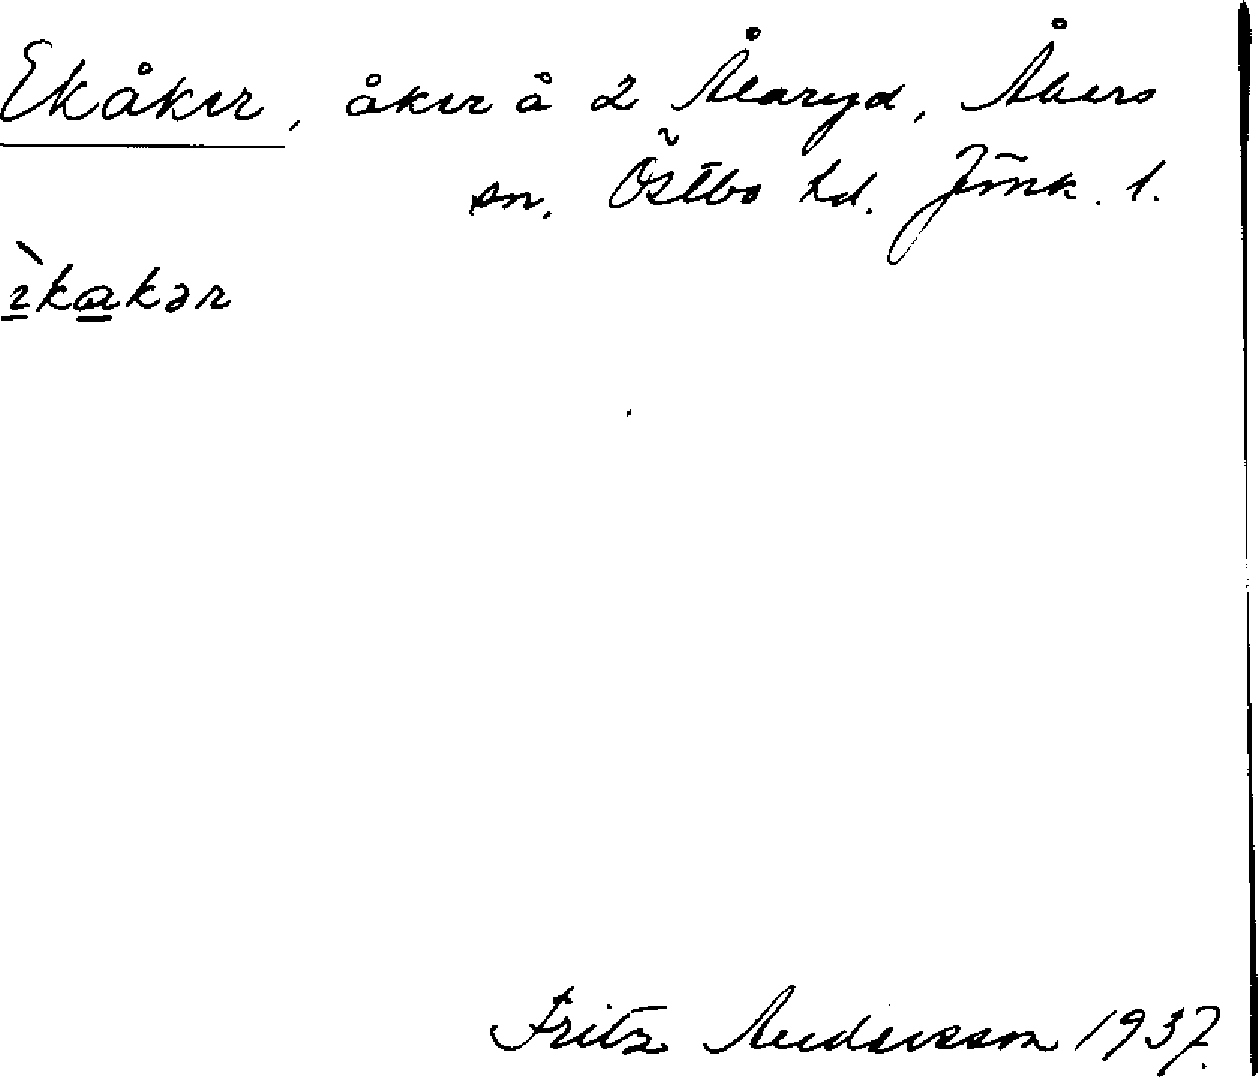 Ekåker, åker å 2 Ålaryd, Åkers
sn. Östbo hd. Jönk. l.
èkakər
Fritz Andersson 1937.